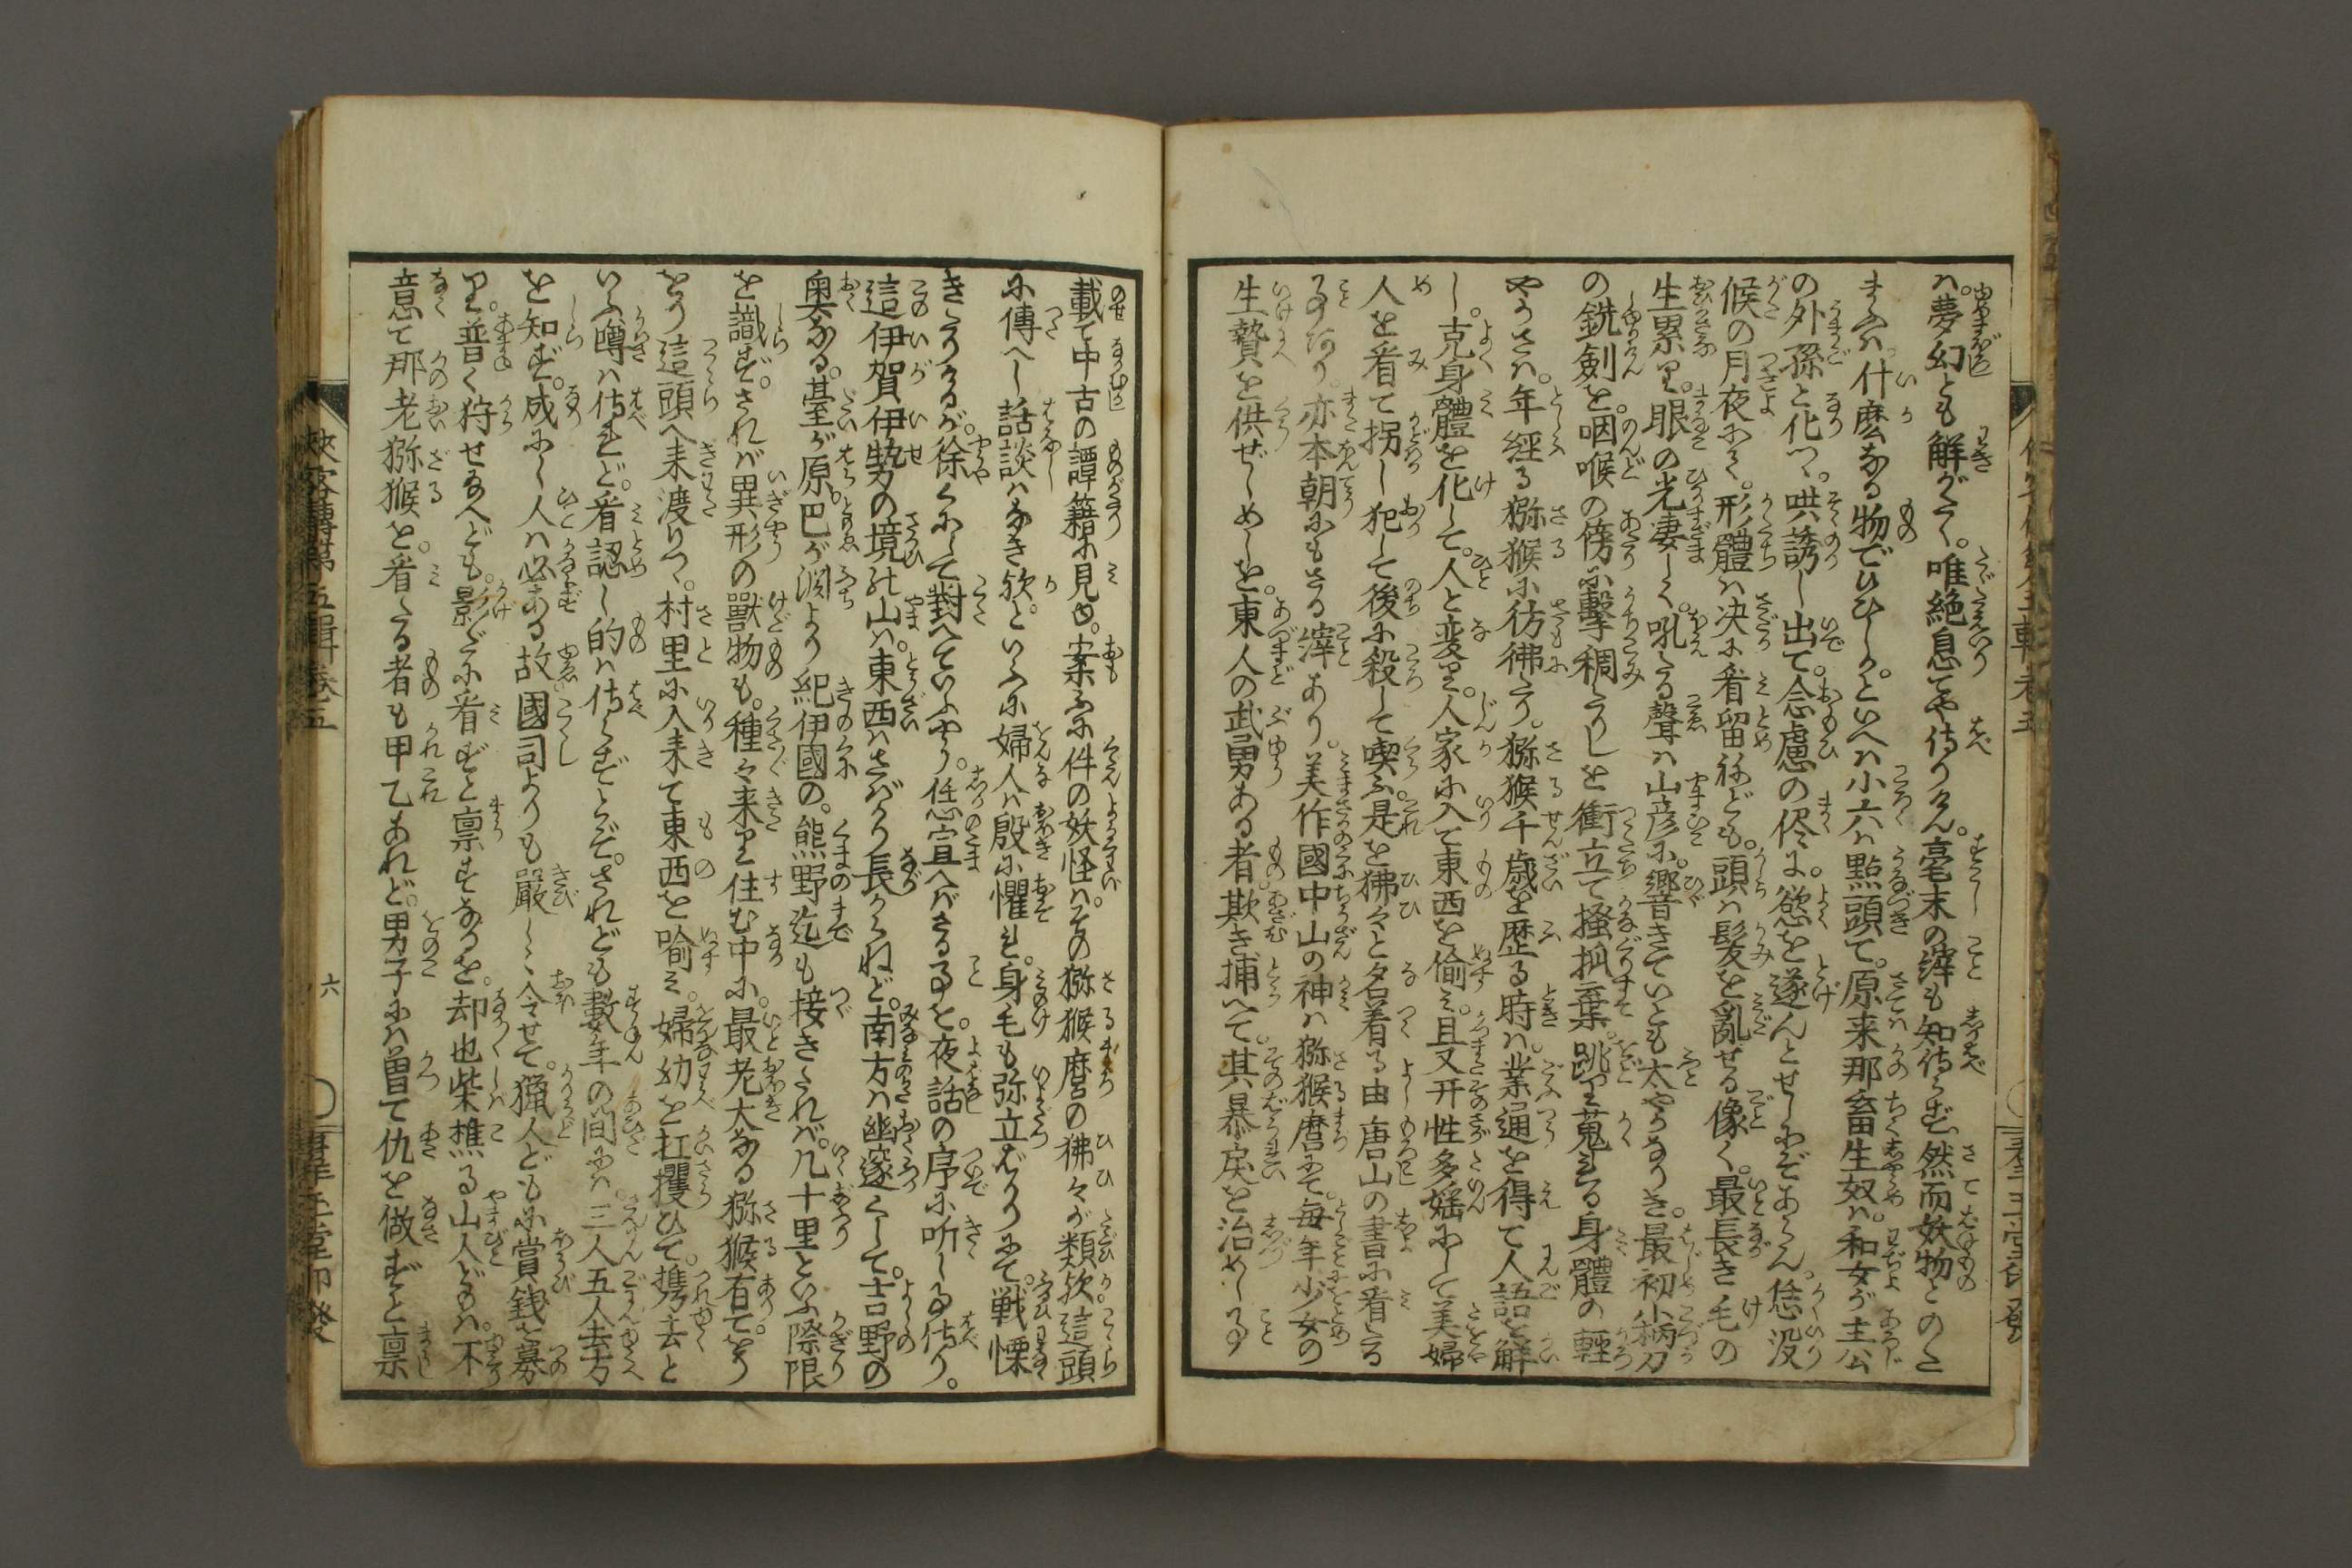 ハ夢幻とも解がたく。唯絶息てや侍りけん。毫末の縡も知侍らず。然而妖物とのた
まふハ什麼なる物でひひしか。といへハ小六ハ點頭て。原来那畜生奴ハ。和女が主公
の外孫と化つゝ。哄誘し出て。念慮の侭に。慾を遂んとせしにぞあらん。恁没
候の月夜にて。形體ハ决に看留ねども。頭ハ髪を亂せる像く。最長き毛の
生累り。眼の光凄しく。吼たる聲ハ山彦に。響きていとも太やうなりき。最初小柄刀
の銑劍を。咽喉の傍に撃稠たりしを衝立て掻抓棄。跳り蒐れる身體の輕
やうさハ。年經る猕猴に彷彿たり。猕猴千歳を歴る時ハ。業通を得て人語を解
し。克身體を化して。人と変り。人家に入て東西を偷ミ。且又开性多婬にして美婦
人を看て拐し犯して後に殺して喫ふ。是を狒々と名着る由唐山の書に看たる
事あり。亦本朝にもさる縡あり。美作國中山の神ハ猕猴麿にて。毎年少女の
生贄を供ぜしめしを。東人の武勇ある者。欺き捕へて。其暴戻を治めし事
載て中古の譚籍に見ゆ。案ふに件の妖怪ハ。その猕猴麿の狒々が類欤。這頭
に傳へし話談ハなき欤。といふに婦人ハ殷に懼れ。身毛も弥立ばかりにて。戦慄
きたりけるが。徐くにして對へていふやう。恁宣へばさる事を。夜話の序に听し事侍り。
這伊賀伊勢の境の山ハ。東西ハさばかり長からねど。南方ハ幽邃くして。吉野の
奥なる。䑓が原。巴が淵より紀伊國の。熊野迄も接きたれバ。几十里といふ際限
を識ず。されバ異形の獸物も。種々来り住む中に。最老大なる猕猴有て。をり
をり這頭へ来渡りつゝ。村里に入来て東西を喻ミ。婦幼を扛攫ひて。携去と
いふ噂ハ侍れど。看認し的ハ侍らずとぞ。されども數年の間にハ。三人五人去方
を知ず。成にし人ハ必ある故國司よりも嚴しく令せて。獵人どもに賞銭を募
り。普く狩せ給へども。影だに看ずと禀すなるを。却也柴樵る山人どもハ。不
意て那老猕猴を。看たる者も甲乙あれど。男子にハ曽て仇を做ずと禀
俠客傳第五輯巻五
六
群玉堂印發